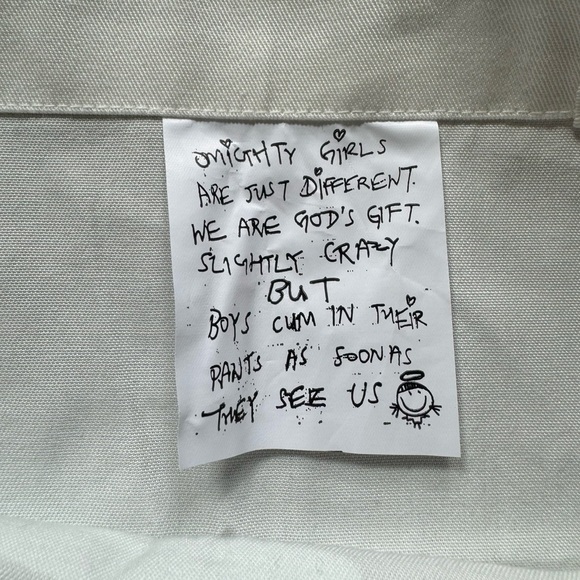 MIGHTY GIRLS
ARE JUST DIFFERENT.
WE ARE GOD'S GIFT.
SLIGHTLY CRAZY
BUT
BOYS CUM IN THEIR
PANTS AS SOON AS
THEY SEE US